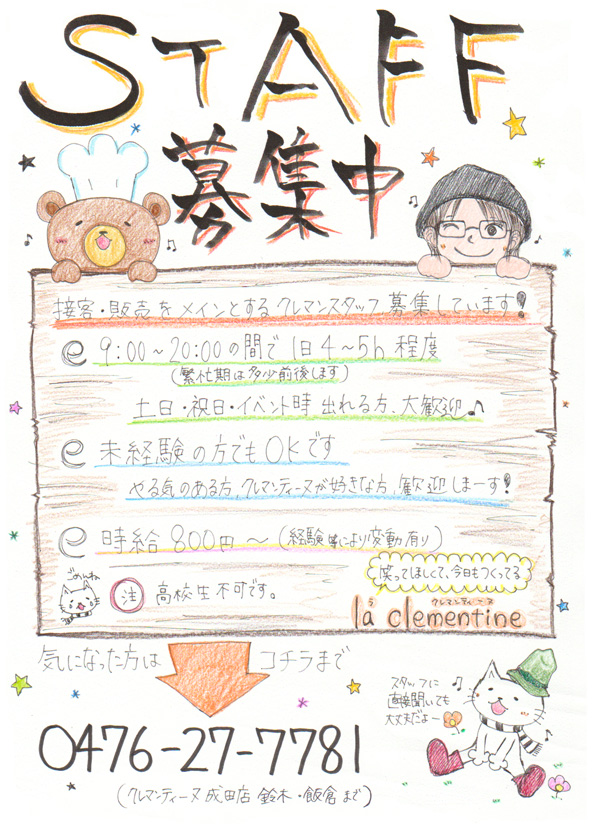 STAFF
募集中
接客・販売をメインとするクレマンスタッフ募集しています!
e 9:00~20:00の間で1日4~5h程度
(繁忙期は多少前後します)
土日・祝日・イベント時出れる方、大歓迎♪
e 未経験の方でもOKです
やる気のある方、クレマンティーヌが好きな方、歓迎しまーす!
e 時給800円~(経験等により変動有り)
笑ってほしくて、今日もつくってる
ごめんね
注 高校生不可です。
ラ クレマンティーヌ
la clementine
気になった方は コチラまで
スタッフに
直接聞いても
大丈夫だよー
0476-27-7781
(クレマンティーヌ成田店 鈴木・飯倉まで)